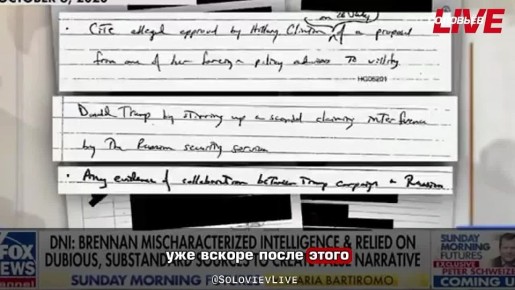 OCTOBER 6, 2020
СОЛОВЬЁВ
LIVE
on 28 July
• Cite alleged approval by Hillary Clinton of a proposal
from one of her foreign policy advisers to vilify
HG08201
Donald Trump by stirring up a scandal claiming interference
by the Russian security service
• Any evidence of collaboration between Trump campaign & Russia
FOX NEWS channel
DNI: BRENNAN MISCHARACTERIZED INTELLIGENCE & RELIED ON
DUBIOUS, SUBSTANDARD SOURCES TO CREATE NARRATIVE
уже вскоре после этого
SUNDAY MORNING FUTURES
MARIA BARTIROMO
@SOLOVIEVLIVE
SUNDAY
MORNING
FUTURES
EXCLUSIVE
PETER SCHWEIZE
COMING U